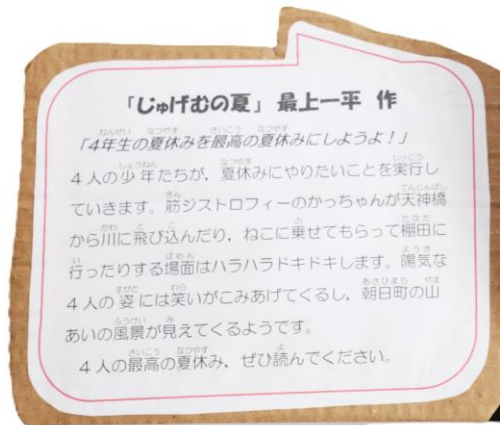 「じゅげむの夏」 最上一平 作
「4年生の夏休みを最高の夏休みにしようよ！」
4人の少年たちが，夏休みにやりたいことを実行し
ていきます。筋ジストロフィーのかっちゃんが天神橋
から川に飛び込んだり，ねこに乗せてもらって棚田に
行ったりする場面はハラハラドキドキします。陽気な
4人の姿には笑いがこみあげてくるし，朝日町の山
あいの風景が見えてくるようです。
4人の最高の夏休み，ぜひ読んでください。